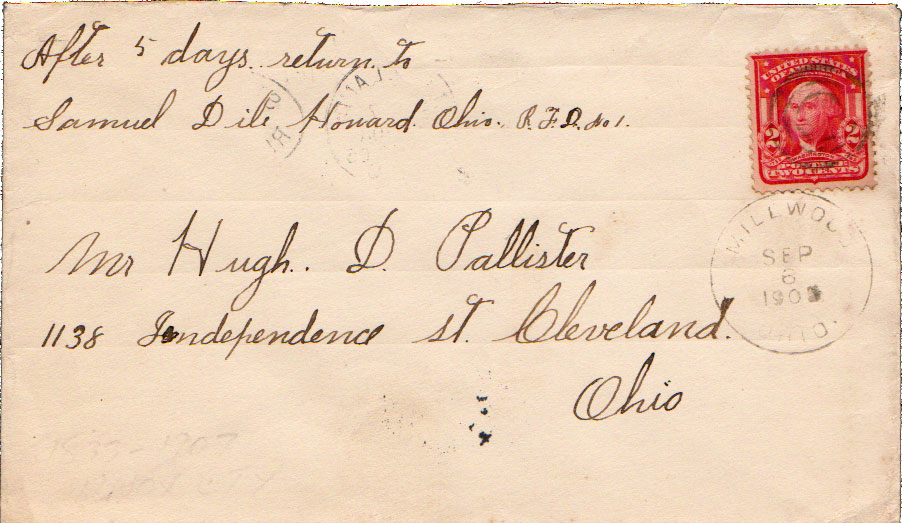 After 5 days return to
Samuel Dile Howard Ohio. R.F.D. No 1.
UNITED STATES
OF AMERICA
2 2
WASHINGTON
POSTAGE
TWO CENTS
MILLWOOD
SEP
6
1903
OHIO.
Mr Hugh. D. Pallister
1138 Independence st. Cleveland.
Ohio